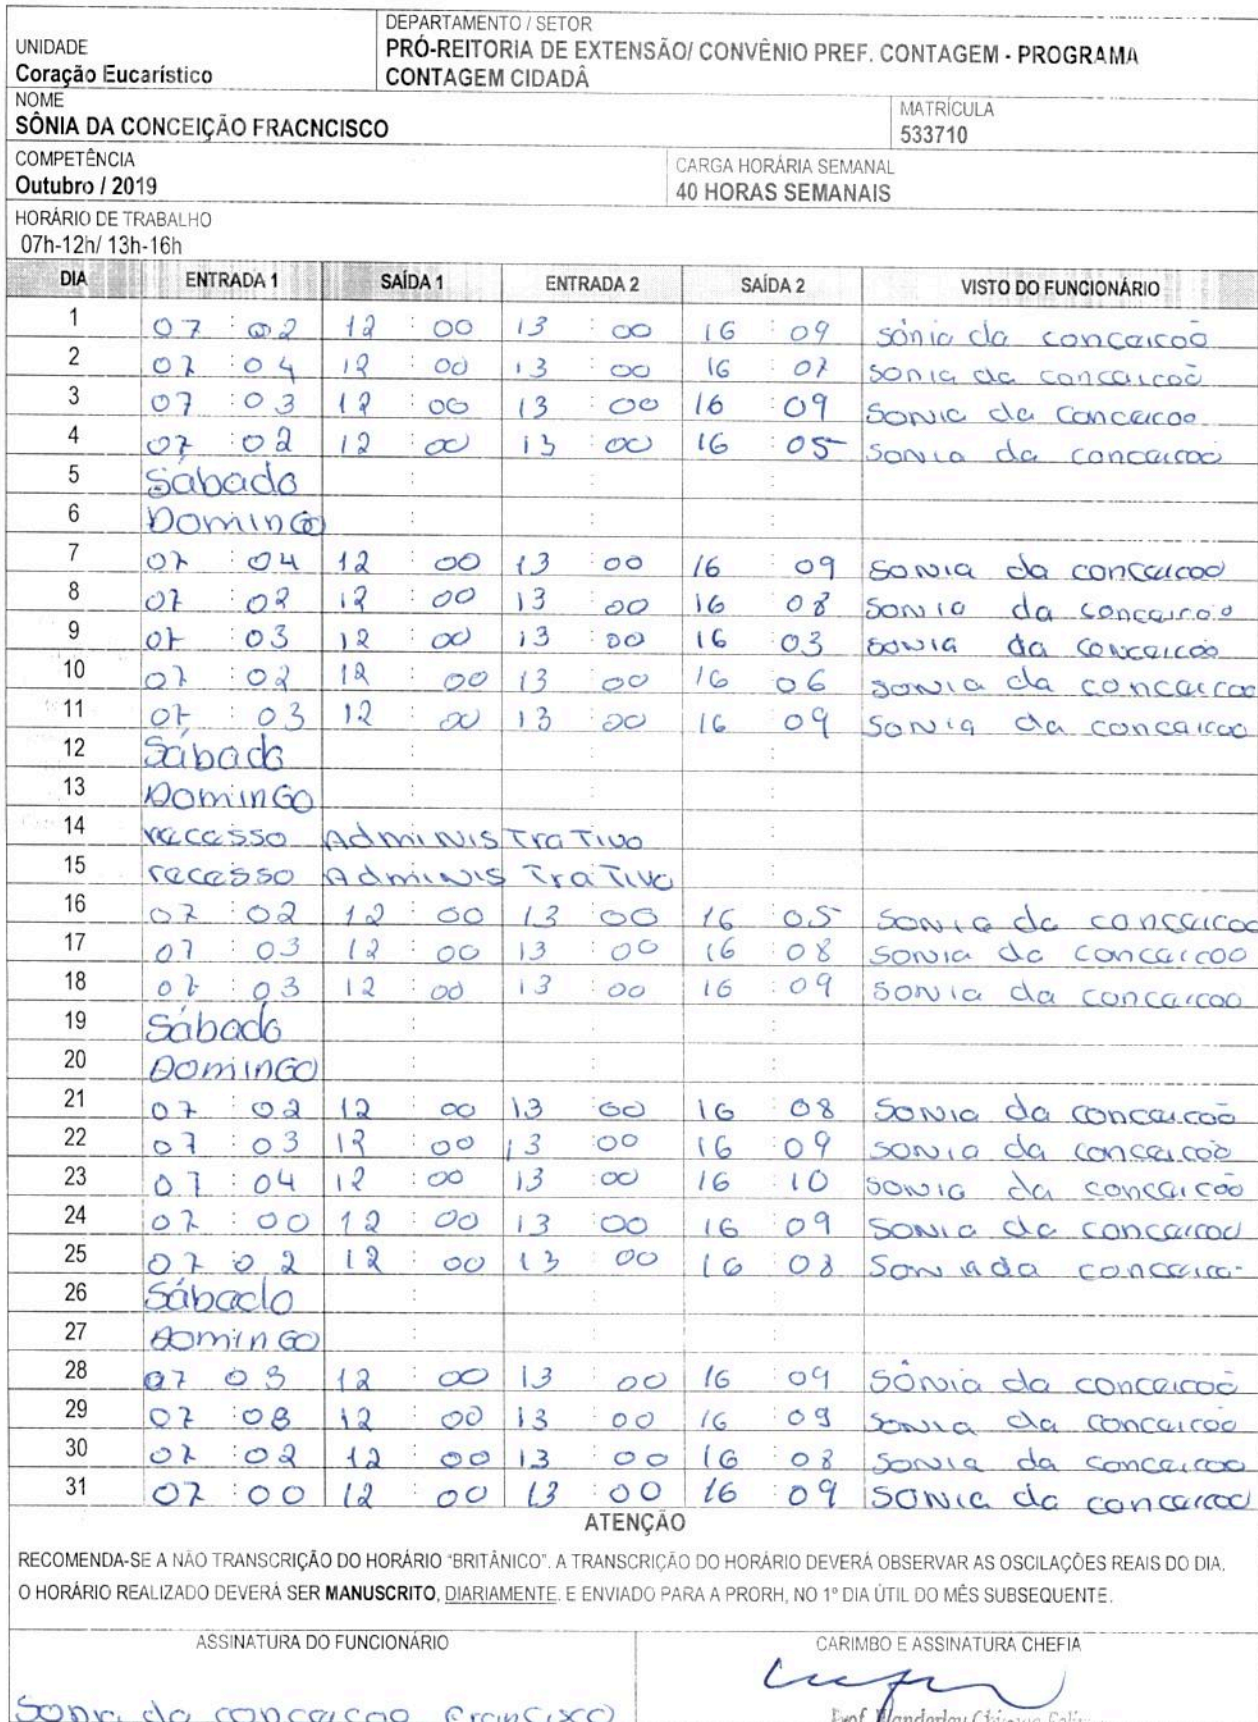 DEPARTAMENTO / SETOR
UNIDADE
PRÓ-REITORIA DE EXTENSÃO/ CONVÊNIO PREF. CONTAGEM - PROGRAMA
Coração Eucarístico
CONTAGEM CIDADÂ
NOME
MATRÍCULA
SÔNIA DA CONCEIÇÃO FRACNCISCO
533710
COMPETÊNCIA
CARGA HORÁRIA SEMANAL
Outubro / 2019
40 HORAS SEMANAIS
HORÁRIO DE TRABALHO
07h-12h/ 13h-16h
DIA ENTRADA 1 SAÍDA 1 ENTRADA 2 SAÍDA 2 VISTO DO FUNCIONÁRIO
1 07 : 02 12 : 00 13 : 00 16 : 09 sônia da concaicoõ
2 07 : 04 12 : 00 13 : 00 16 : 07 sonia da concaicoõ
3 07 : 03 12 : 00 13 : 00 16 : 09 sonia da concaicoo
4 07 : 02 12 : 00 13 : 00 16 : 05 sonia da concaicoo
5 Sábado : : :
6 Domingo : : :
7 07 : 04 12 : 00 13 : 00 16 09 sonia da concaicoo
8 07 : 02 12 : 00 13 : 00 16 : 08 sonia da concaicoo
9 07 : 03 12 : 00 13 : 00 16 : 03 sonia da concaicoo
10 07 : 02 12 : 00 13 : 00 16 : 06 sonia da concaicoo
11 07 : 03 12 : 00 13 : 00 16 : 09 sonia da concaicoo
12 Sábado : : :
13 DominGo : : :
14 recesso AdminisTraTivo :
15 recesso AdminisTraTivo :
16 07 : 02 12 : 00 13 : 00 16 : 05 sonia da concaicoo
17 07 : 03 12 : 00 13 : 00 16 : 08 sonia da concaicoo
18 07 : 03 12 : 00 13 : 00 16 : 09 sonia da concaicoo
19 Sábado : : :
20 DominGo : : :
21 07 : 02 12 : 00 13 : 00 16 : 08 sonia da concaicoõ
22 07 : 03 12 : 00 13 : 00 16 : 09 sonia da concaicoõ
23 07 : 04 12 : 00 13 : 00 16 : 10 sonia da concaicoo
24 07 : 00 12 : 00 13 : 00 16 : 09 sonia da concaicoo
25 07 : 02 12 : 00 13 : 00 16 : 08 sonia da
26 Sábado : : :
27 DominGo : : :
28 07 03 12 : 00 13 : 00 16 : 09 sônia da concaicoõ
29 07 : 08 12 : 00 13 : 00 16 : 09 sonia da concaicoo
30 07 : 02 12 : 00 13 : 00 16 : 08 sonia da concaicoo
31 07 : 00 12 : 00 13 : 00 16 : 09 sonia da concaicoo
ATENÇÃO
RECOMENDA-SE A NÃO TRANSCRIÇÃO DO HORÁRIO "BRITÂNICO". A TRANSCRIÇÃO DO HORÁRIO DEVERÁ OBSERVAR AS OSCILAÇÕES REAIS DO DIA.
O HORÁRIO REALIZADO DEVERÁ SER MANUSCRITO, DIARIAMENTE. E ENVIADO PARA A PRORH, NO 1º DIA ÚTIL DO MÊS SUBSEQUENTE.
ASSINATURA DO FUNCIONÁRIO CARIMBO E ASSINATURA CHEFIA
Sonia da concaicao Francisco Prof. Wanderley